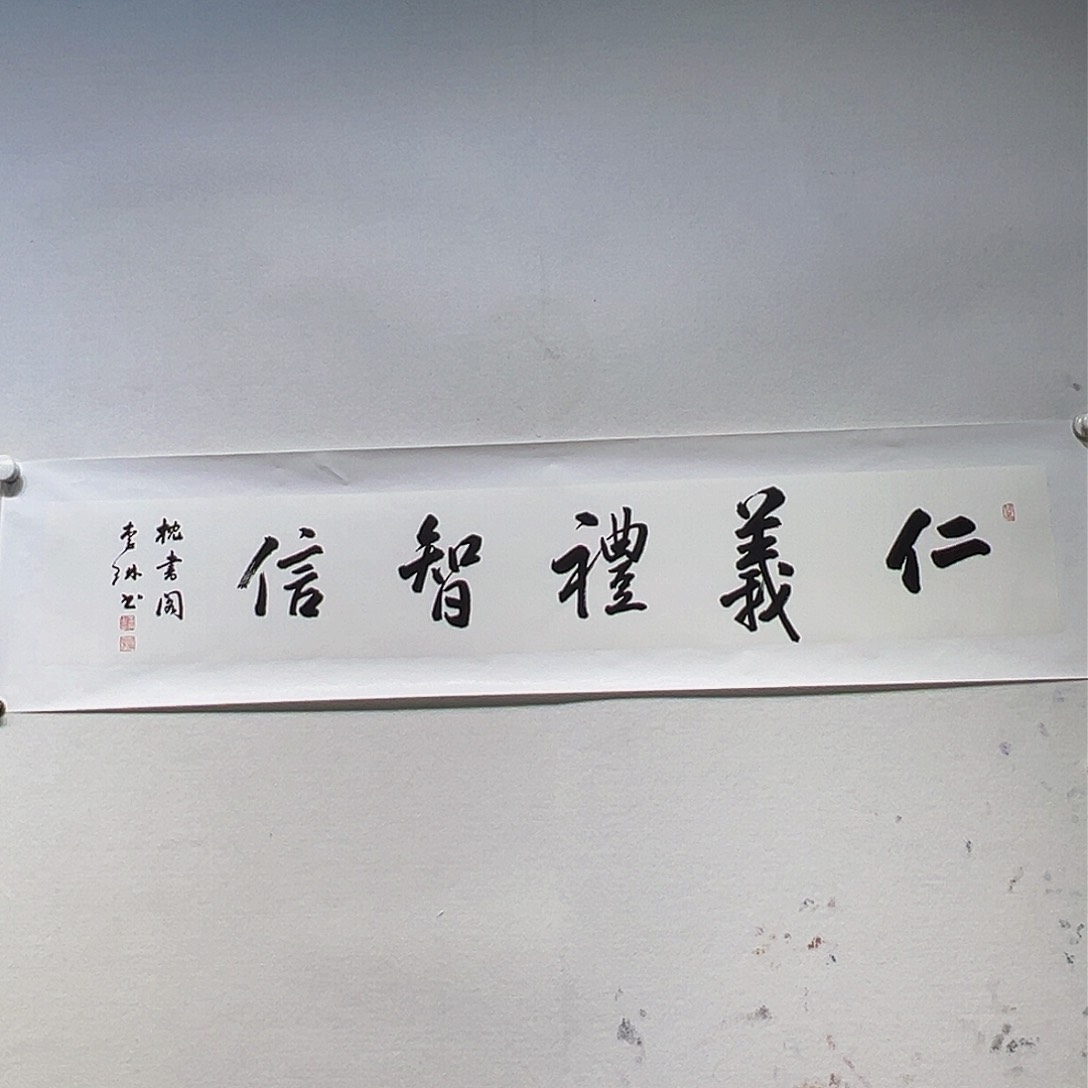 仁義禮智信
枕書閣
李琳书